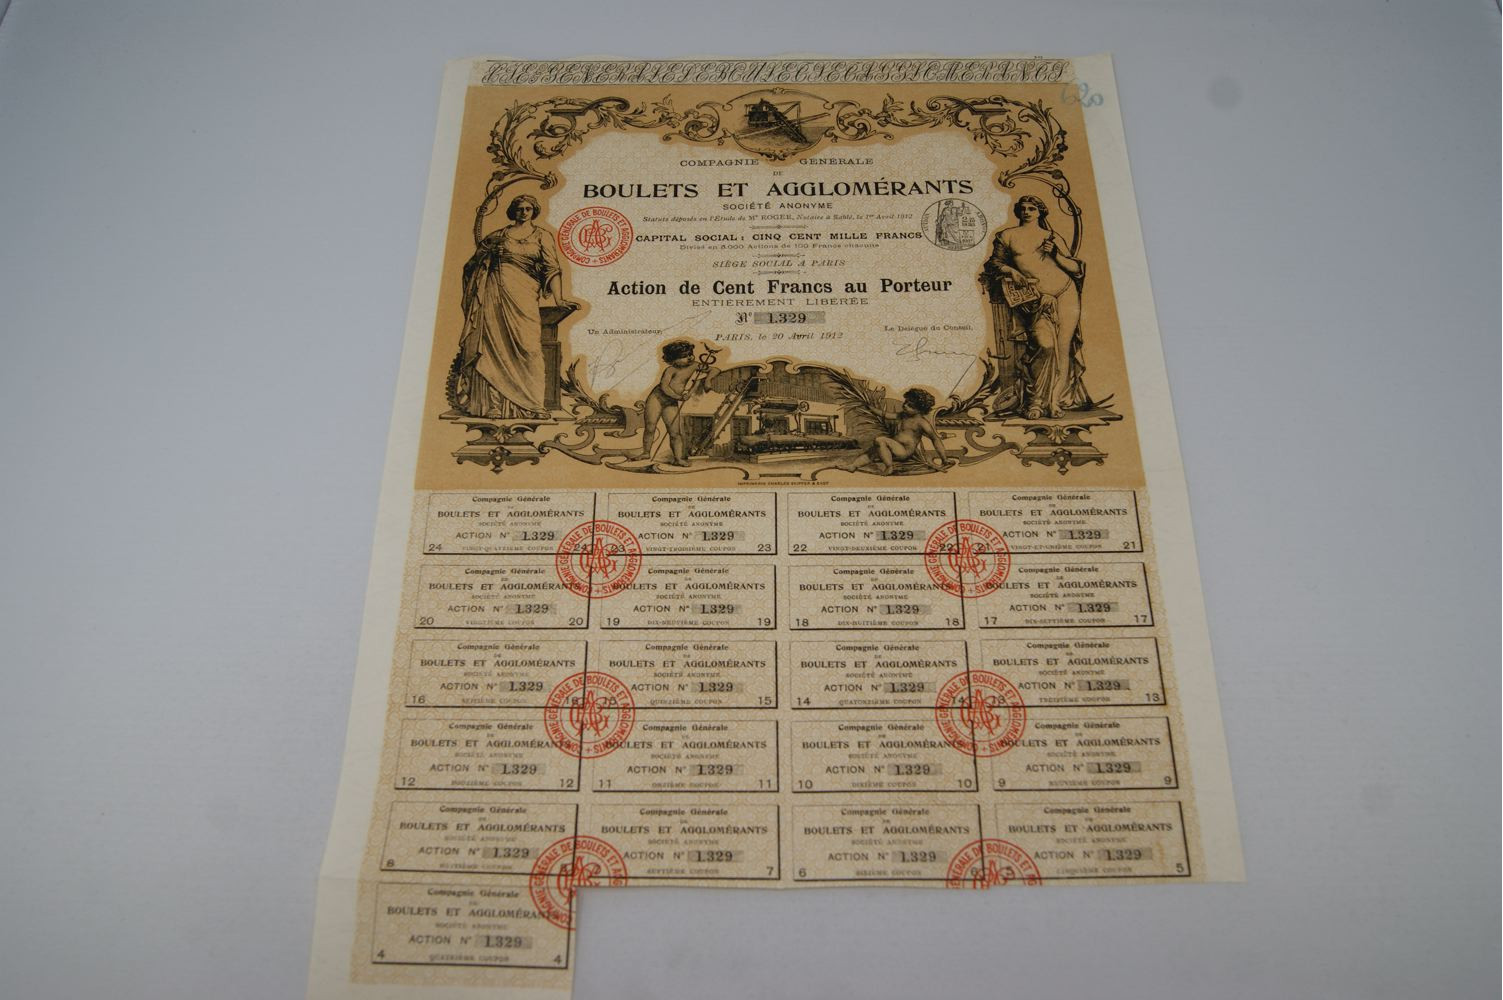 620
COMPAGNIE GÉNÉRALE
DE
BOULETS ET AGGLOMÉRANTS
SOCIÉTÉ ANONYME
Statuts déposés en l'Étude de Me ROGER, Notaire à Sablé, le 1er Avril 1912
CAPITAL SOCIAL : CINQ CENT MILLE FRANCS
Divisé en 5.000 Actions de 100 Francs chacune
SIÈGE SOCIAL A PARIS
Action de Cent Francs au Porteur
ENTIÈREMENT LIBÉRÉE
N° 1.329
PARIS, le 20 Avril 1912
Un Administrateur,
Le Délégué du Conseil,
COMPAGNIE GÉNÉRALE DE BOULETS ET AGGLOMERANTS
IMPRIMERIE CHARLES SKIPPER & EAST
Compagnie Générale
DE
BOULETS ET AGGLOMÉRANTS
SOCIÉTÉ ANONYME
ACTION N° 1.329
24 VINGT-QUATRIÈME COUPON 24
Compagnie Générale
DE
BOULETS ET AGGLOMÉRANTS
SOCIÉTÉ ANONYME
ACTION N° 1.329
23 VINGT-TROISIÈME COUPON 23
Compagnie Générale
DE
BOULETS ET AGGLOMÉRANTS
SOCIÉTÉ ANONYME
ACTION N° 1.329
22 VINGT-DEUXIÈME COUPON 22
Compagnie Générale
DE
BOULETS ET AGGLOMÉRANTS
SOCIÉTÉ ANONYME
ACTION N° 1.329
21 VINGT-ET-UNIÈME COUPON 21
Compagnie Générale
DE
BOULETS ET AGGLOMÉRANTS
SOCIÉTÉ ANONYME
ACTION N° 1.329
20 VINGTIÈME COUPON 20
Compagnie Générale
DE
BOULETS ET AGGLOMÉRANTS
SOCIÉTÉ ANONYME
ACTION N° 1.329
19 DIX-NEUVIÈME COUPON 19
Compagnie Générale
DE
BOULETS ET AGGLOMÉRANTS
SOCIÉTÉ ANONYME
ACTION N° 1.329
18 DIX-HUITIÈME COUPON 18
Compagnie Générale
DE
BOULETS ET AGGLOMÉRANTS
SOCIÉTÉ ANONYME
ACTION N° 1.329
17 DIX-SEPTIÈME COUPON 17
Compagnie Générale
DE
BOULETS ET AGGLOMÉRANTS
SOCIÉTÉ ANONYME
ACTION N° 1.329
16 COUPON 16
Compagnie Générale
DE
BOULETS ET AGGLOMÉRANTS
SOCIÉTÉ ANONYME
ACTION N° 1.329
15 QUINZIÈME COUPON 15
Compagnie Générale
DE
BOULETS ET AGGLOMÉRANTS
SOCIÉTÉ ANONYME
ACTION N° 1.329
14 QUATORZIÈME COUPON 14
Compagnie Générale
DE
BOULETS ET AGGLOMÉRANTS
SOCIÉTÉ ANONYME
ACTION N° 1.329
13 TREIZIÈME COUPON 13
Compagnie Générale
DE
BOULETS ET AGGLOMÉRANTS
SOCIÉTÉ ANONYME
ACTION N° 1.329
12 DOUZIÈME COUPON 12
Compagnie Générale
DE
BOULETS ET AGGLOMÉRANTS
SOCIÉTÉ ANONYME
ACTION N° 1.329
11 ONZIÈME COUPON 11
Compagnie Générale
DE
BOULETS ET AGGLOMÉRANTS
SOCIÉTÉ ANONYME
ACTION N° 1.329
10 DIXIÈME COUPON 10
Compagnie Générale
DE
BOULETS ET AGGLOMÉRANTS
SOCIÉTÉ ANONYME
ACTION N° 1.329
9 NEUVIÈME COUPON 9
Compagnie Générale
DE
BOULETS ET AGGLOMÉRANTS
SOCIÉTÉ ANONYME
ACTION N° 1.329
8 HUITIÈME COUPON
Compagnie Générale
DE
BOULETS ET AGGLOMÉRANTS
SOCIÉTÉ ANONYME
ACTION N° 1.329
SEPTIÈME COUPON 7
Compagnie Générale
DE
BOULETS ET AGGLOMÉRANTS
SOCIÉTÉ ANONYME
ACTION N° 1.329
6 SIXIÈME COUPON 6
Compagnie Générale
DE
BOULETS ET AGGLOMÉRANTS
SOCIÉTÉ ANONYME
ACTION N° 1.329
CINQUIÈME COUPON 5
Compagnie Générale
DE
BOULETS ET AGGLOMÉRANTS
SOCIÉTÉ ANONYME
ACTION N° 1.329
4 QUATRIÈME COUPON 4